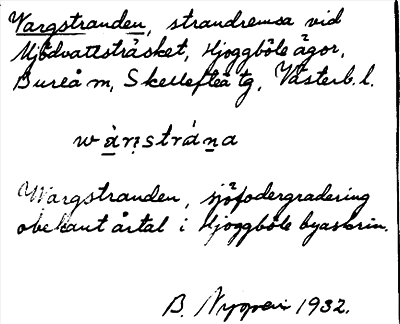 Vargstranden, strandremsa vid
Mjödvattsträsket, Hjoggböle ägor,
Bureå m, Skellefteå tg, Västerb. l.
Wargstranden, sjöfodergradering
obekant årtal i Hjoggböle byaskrin.
B. Nygren 1932.